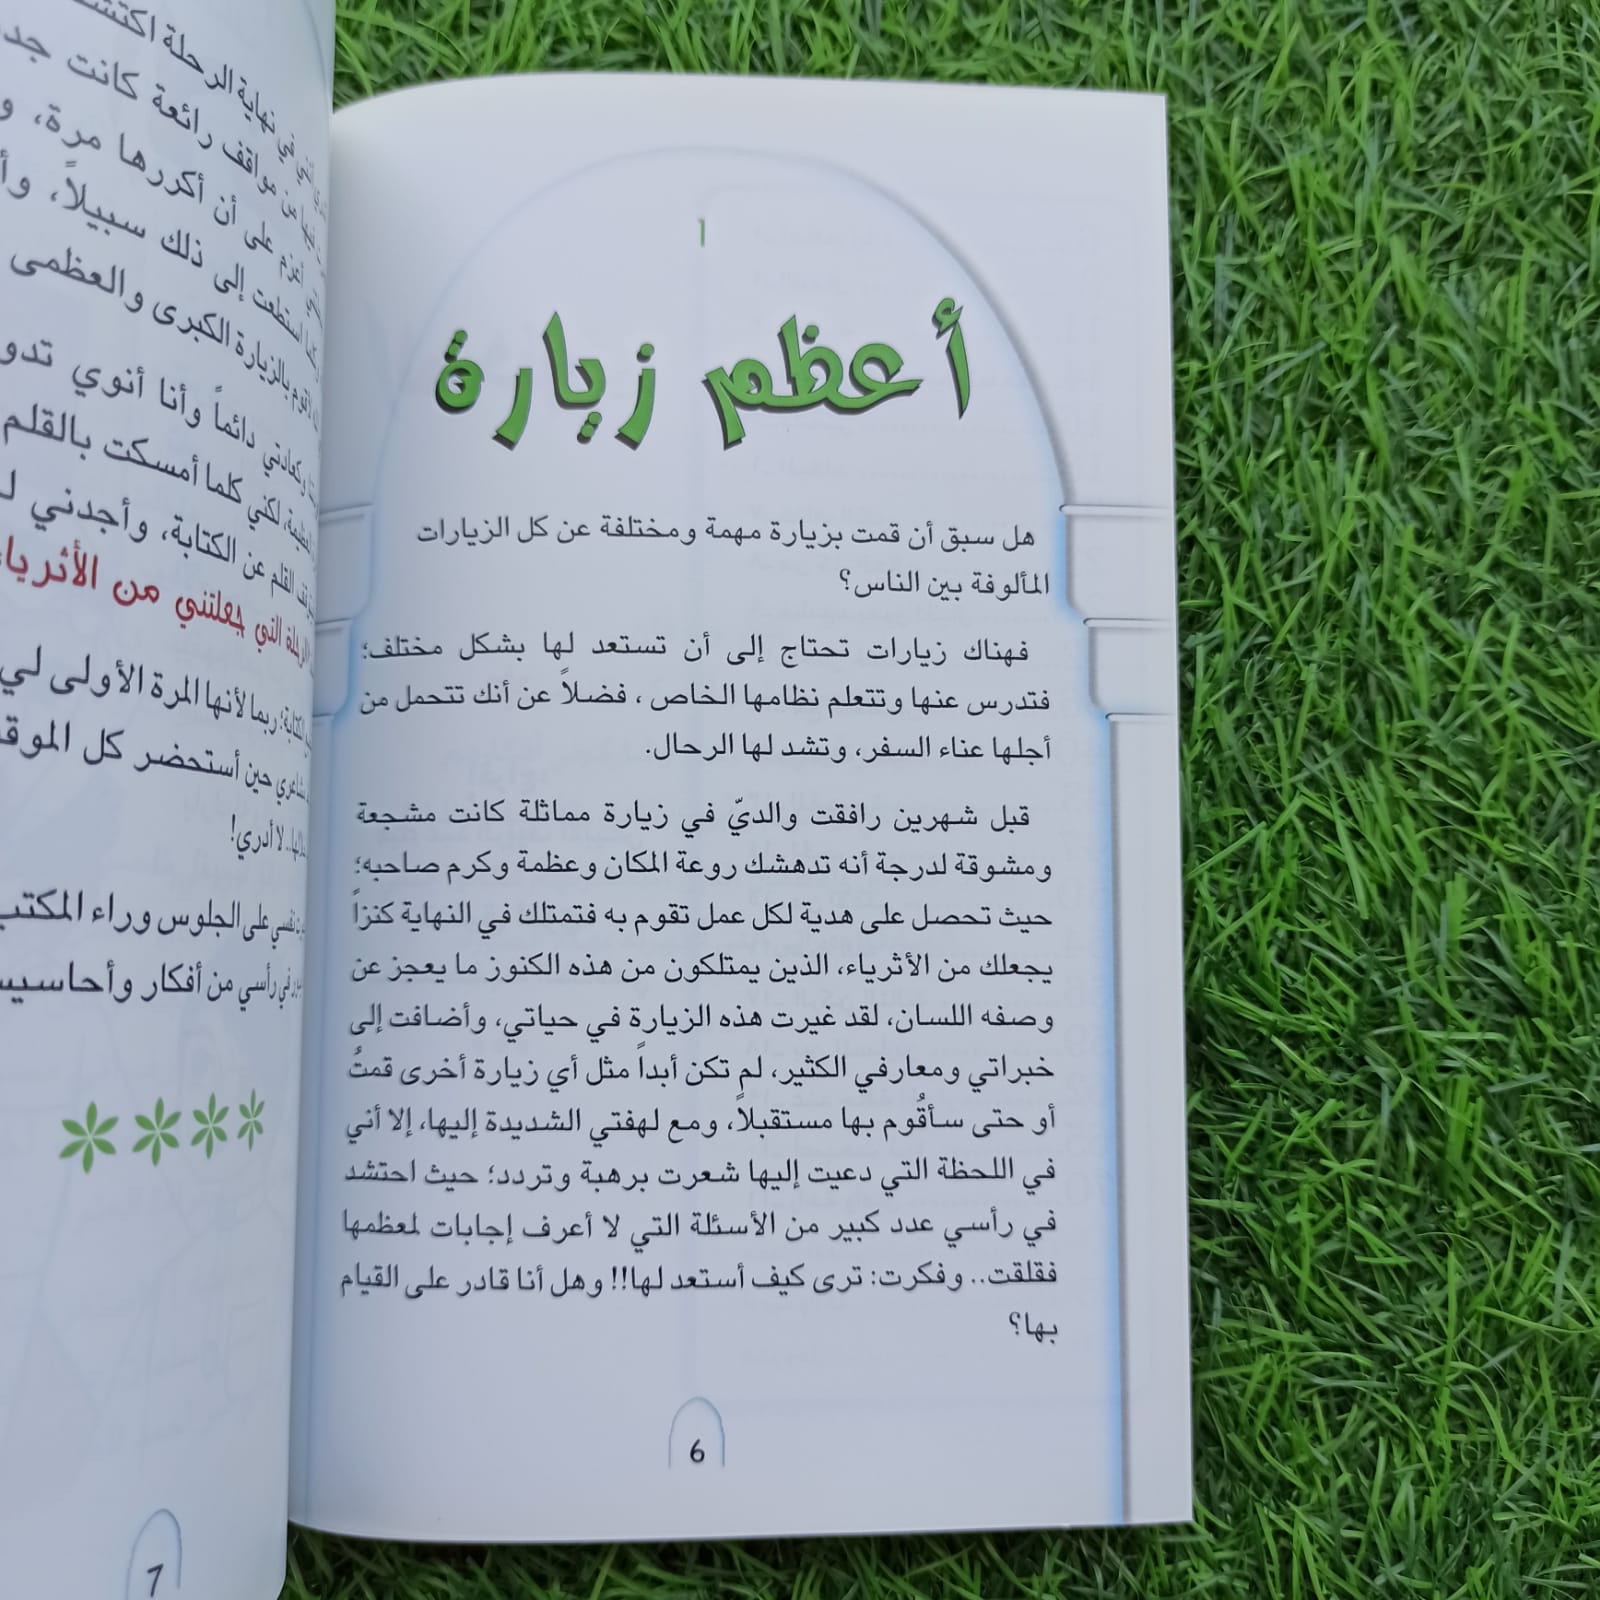 ١
أعظم زيارة
هل سبق أن قمت بزيارة مهمة ومختلفة عن كل الزيارات
المألوفة بين الناس؟
فهناك زيارات تحتاج إلى أن تستعد لها بشكل مختلف؛
فتدرس عنها وتتعلم نظامها الخاص ، فضلاً عن أنك تتحمل من
أجلها عناء السفر، وتشد لها الرحال.
قبل شهرين رافقت والديّ في زيارة مماثلة كانت مشجعة
ومشوقة لدرجة أنه تدهشك روعة المكان وعظمة وكرم صاحبه؛
حيث تحصل على هدية لكل عمل تقوم به فتمتلك في النهاية كنزاً
يجعلك من الأثرياء، الذين يمتلكون من هذه الكنوز ما يعجز عن
وصفه اللسان، لقد غيرت هذه الزيارة في حياتي، وأضافت إلى
خبراتي ومعارفي الكثير، لم تكن أبداً مثل أي زيارة أخرى قمتُ
أو حتى سأقُوم بها مستقبلاً، ومع لهفتي الشديدة إليها، إلا أني
في اللحظة التي دعيت إليها شعرت برهبة وتردد؛ حيث احتشد
في رأسي عدد كبير من الأسئلة التي لا أعرف إجابات لمعظمها
فقلقت.. وفكرت: ترى كيف أستعد لها!! وهل أنا قادر على القيام
بها؟
6
في نهاية الرحلة
مواقف رائعة كانت
على أن أكررها مرة،
استطعت إلى ذلك سبيلاً،
بالزيارة الكبرى والعظمى
وكعادتي دائماً وأنا أنوي
لكني كلما أمسكت بالقلم
القلم عن الكتابة، وأجدني
التي جعلتني من الأثرياء
ربما لأنها المرة الأولى لي
حين أستحضر كل
لا أدري!
نفسي على الجلوس وراء
في رأسي من أفكار
7